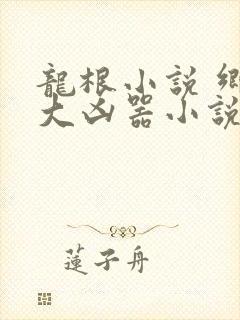 龍根小說 鄉
大凶器小說
蓮子舟